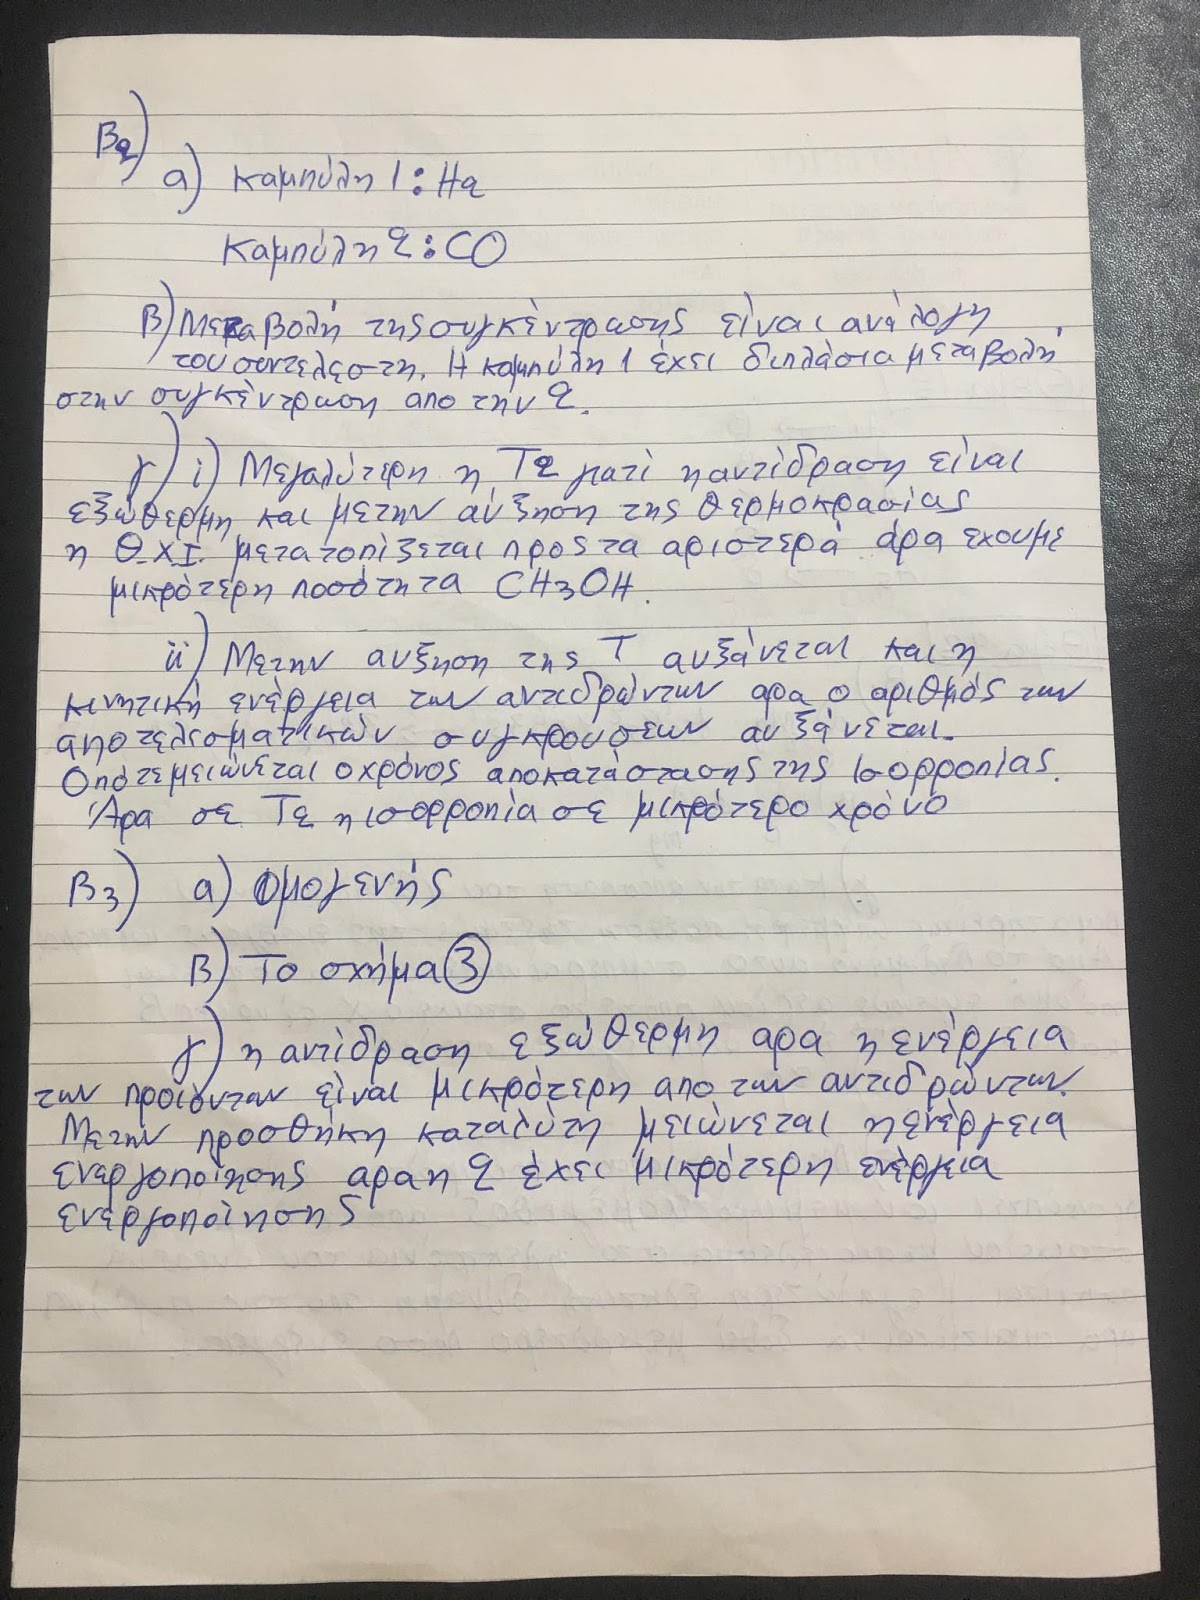 Β2)
α) Καμπύλη 1: H2
Καμπύλη 2: CO
β) Μεταβολή της συγκέντρωσης είναι ανάλογη
του συντελεστη. Η καμπύλη 1 έχει διπλάσια μεταβολή
στην συγκέντρωση απο την 2.
γ) i) Μεγαλύτερη η T2 γιατί η αντίδραση είναι
εξώθερμη και με την αύξηση της θερμοκρασίας
η Θ.Χ.Ι. μετατοπίζεται προς τα αριστερά άρα έχουμε
μικρότερη ποσότητα CH3OH.
ii) Με την αυξηση της T αυξάνεται και η
κινητική ενέργεια των αντιδρώντων αρα ο αριθμός των
αποτελεσματικών συγκρουσεων αυξάνεται.
Οπότε μειώνεται ο χρόνος αποκατάστασης της ισορροπίας.
Άρα σε T2 η ισορροπία σε μικρότερο χρόνο
Β3) α) Ομογενής
β) Το σχήμα 3
γ) η αντίδραση εξώθερμη αρα η ενέργεια
των προϊόνταν είναι μικρότερη απο των αντιδρώντων.
Με την προσθήκη καταλύτη μειώνεται η ενέργεια
ενεργοποίησης αρα η 2 έχει μικρότερη ενέργεια
ενεργοποίησης